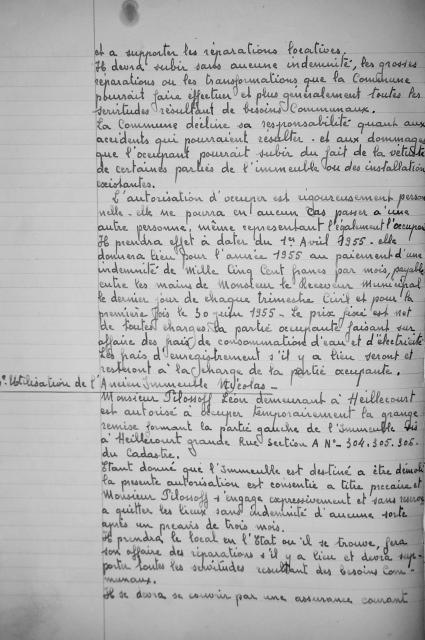 et a supporter les réparations locatives.
Il devra subir sans aucune indemnité, les grosses
réparations ou les transformations que la Commune
pourrait faire effectuer et plus généralement toutes les
servitudes résultant de besoins Communaux.
La Commune décline sa responsabilité quant aux
accidents qui pourraient résulter - et aux dommages
que l'occupant pourrait subir du fait de la vétusté
de certaines parties de l'immeuble ou des installation
existantes.
L'autorisation d'occuper est rigoureusement person
nelle - elle ne pourra en aucun cas passer a une
autre personne, même représentant légalement l'occupan
Il prendra effet à dater du 1er Avril 1955 - elle
donnera lieu pour l'année 1955 au paiement d'une
indemnité de Mille Cinq Cent francs par mois, payable
entre les mains de Monsieur le Receveur Municipal
le dernier jour de chaque trimestre Civil et pour la
première fois le 30 juin 1955 - Le prix fixé est net
de toutes charges, la partie occupante faisant son
affaire des frais de consommation d'eau et d'électricité
Les frais d'enregistrement s'il y a lieu seront et
resteront à la charge de la partie occupante.
° Utilisation de l'Ancien Immeuble Nicolas -
Monsieur Pelossoff Léon demeurant à Heillecourt
est autorisé à occuper temporairement la grange
remise formant la partie gauche de l'Immeuble sis
à Heillecourt grande Rue Section A N° - 304. 305. 306.
du Cadastre.
Etant donné que l'immeuble est destiné a être démoli
la présente autorisation est consentie a titre précaire et
Monsieur Pelossoff s'engage expressivement et sans reserve
a quitter les lieux sans indemnité d'aucune sorte
après un preavis de trois mois.
Il prendra le local en l'Etat ou il se trouve, fera
son affaire des réparations s'il y a lieu et devra sup-
porter toutes les servitudes resultant des besoins Com-
munaux.
Il se devra se couvrir par une assurance courant